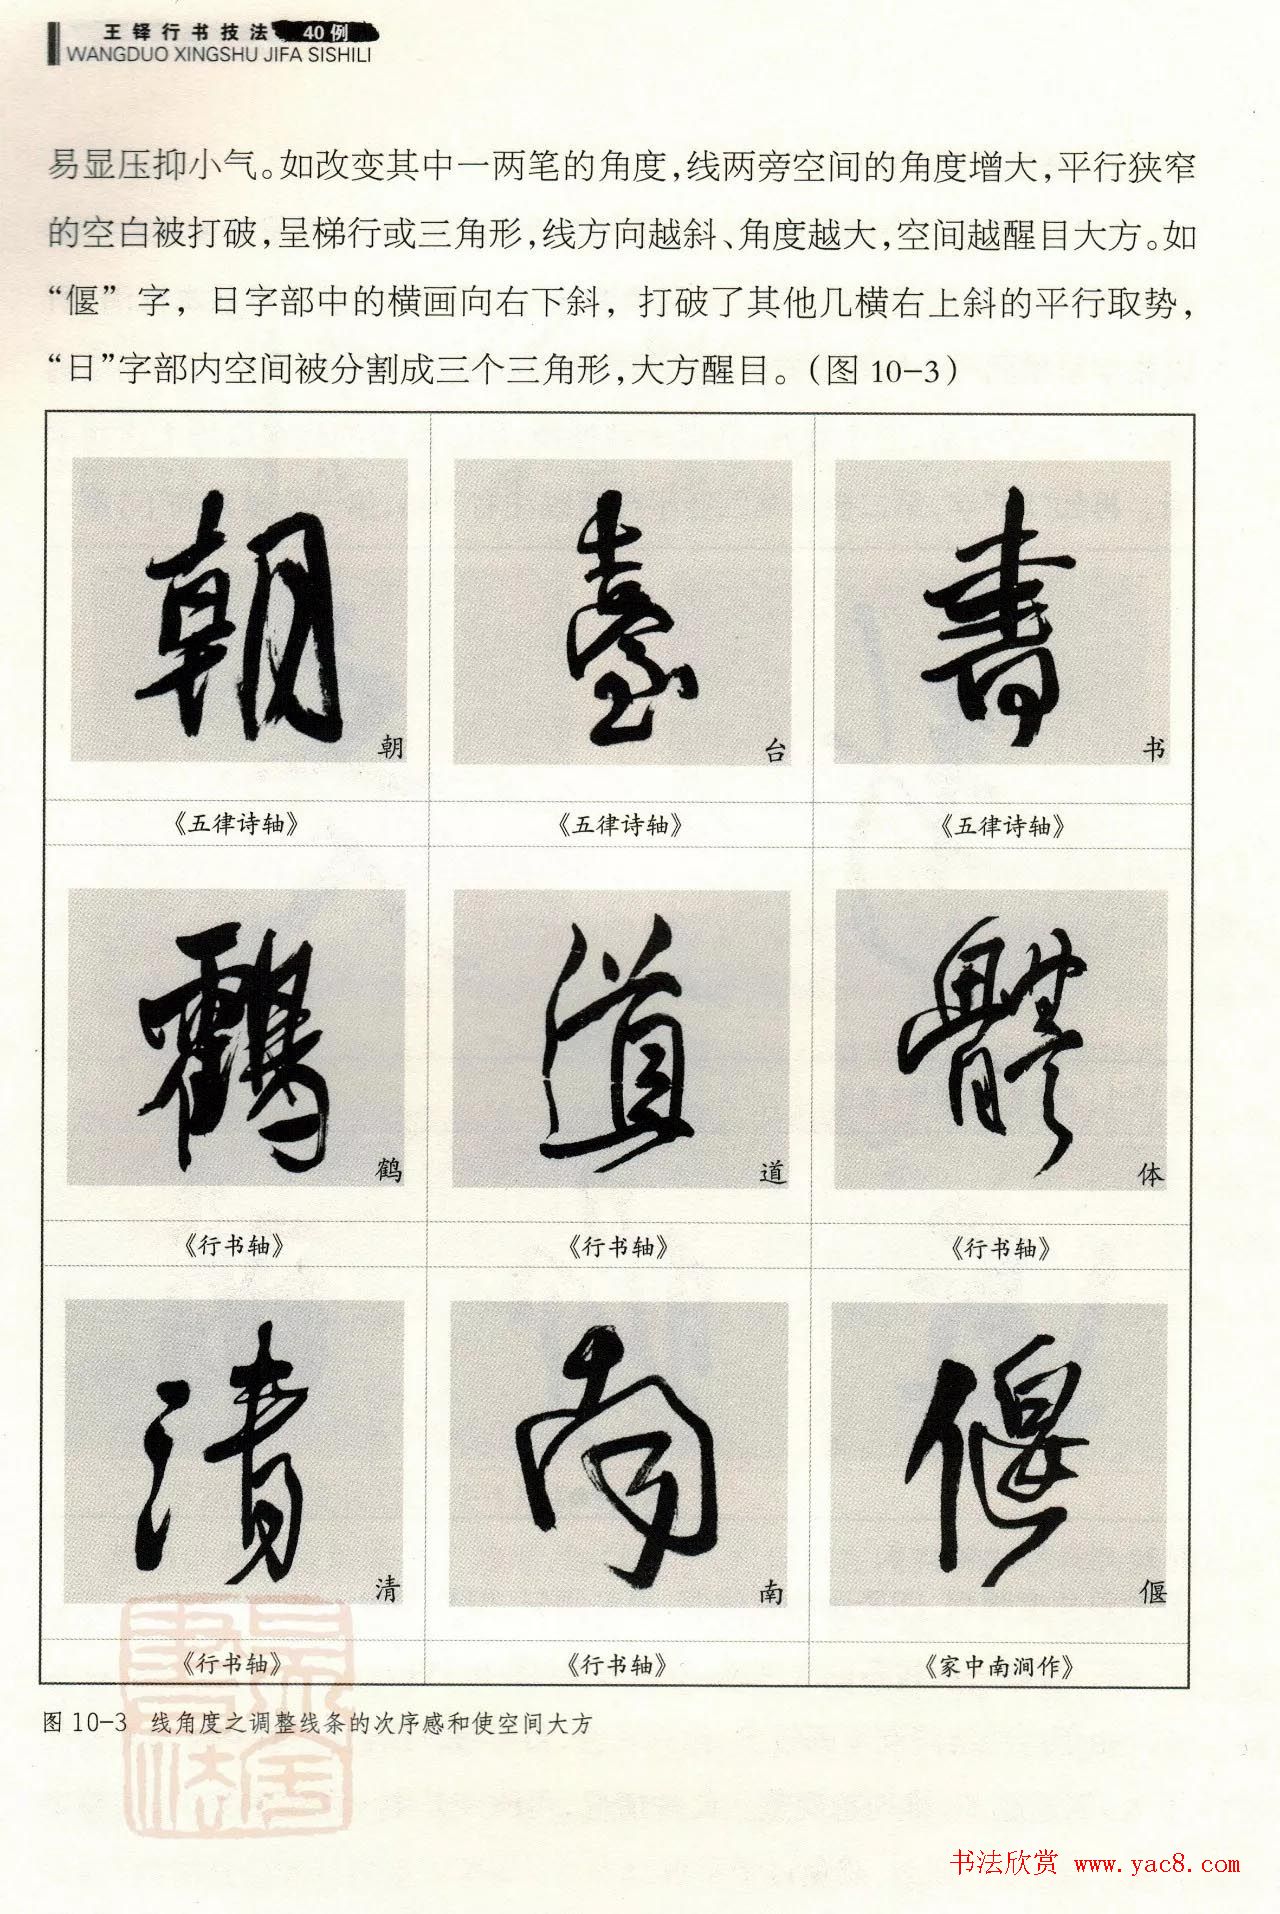 王铎行书技法 40例
WANGDUO XINGSHU JIFA SISHILI
易显压抑小气。如改变其中一两笔的角度，线两旁空间的角度增大，平行狭窄
的空白被打破，呈梯行或三角形，线方向越斜、角度越大，空间越醒目大方。如
“偃”字，日字部中的横画向右下斜，打破了其他几横右上斜的平行取势，
“日”字部内空间被分割成三个三角形，大方醒目。（图 10-3）
朝 臺 書
朝 台 书
《五律诗轴》 《五律诗轴》 《五律诗轴》
鶴 道 體
鹤 道 体
《行书轴》 《行书轴》 《行书轴》
清 南 偃
清 南 偃
《行书轴》 《行书轴》 《家中南涧作》
图 10-3 线角度之调整线条的次序感和使空间大方
书法欣赏 www.yac8.com